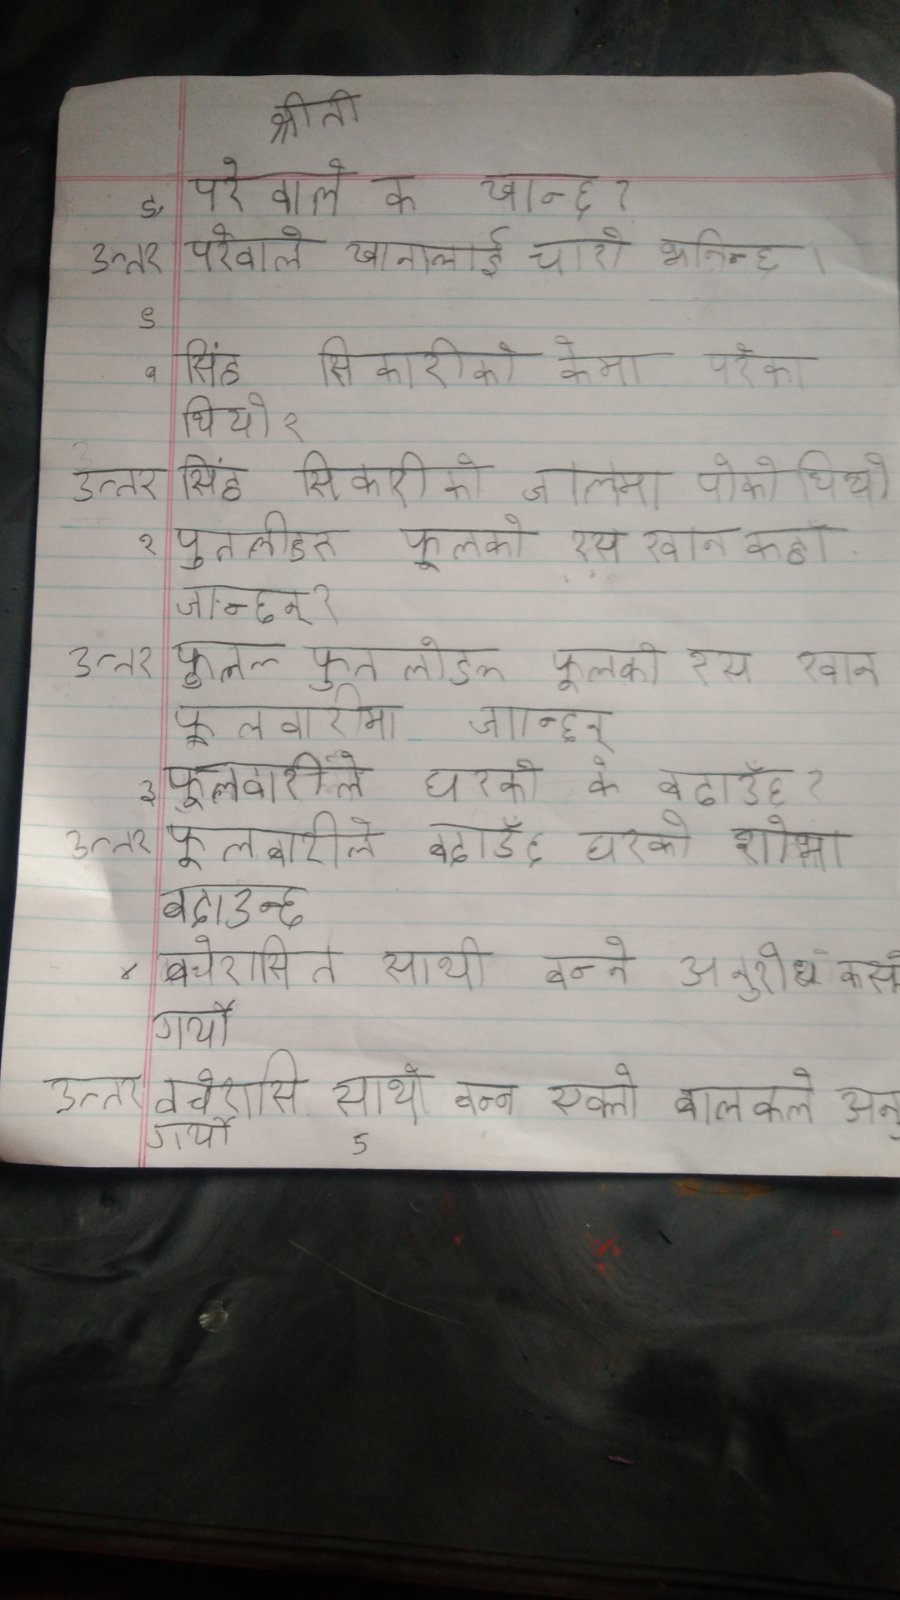 श्रीती
ङ, परेवाले क खान्छ?
उत्तर परेवाले खानालाई चारो भनिन्छ ।
९
१ सिंह सिकारीको केमा परेका
थियो?
उत्तर सिंह सिकरीको जालमा पोको थियो
२ पुतलीहरु फूलको रस खान कहाँ
जान्छन्?
उत्तर फुतलोहरु फूलको रस खान
फूलवारीमा जान्छन्
३ फूलवारीले घरको के बढाउँछ?
उत्तर फूलबारीले बढाउँछ घरको शोभा
बढाउन्छ
४ बचेरासित साथी बन्ने अनुरोध कसले
गर्यो
उत्तर वचेरासि साथी बन्न एक्लो बालकले अनु
गर्यो 5